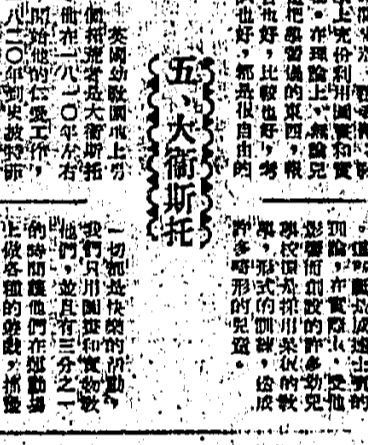 學上充份利用圖畫和實
。在理論上，無論兒
把學習過的東西，報
也好，比較也好，考
也好，都是很自由的
五、大衛斯托
英國幼教園地上另
個拓荒者是大衛斯托
他在一八一〇年左右
開始他的仁愛工作，
八二〇年到史披特
理論，在實際上，受他
影響而創設的許多幼兒
學校還是採用呆板的教
學，形式的訓練，造成
許多畸形的兒童。
一切都是快樂的活動，
我們只用圖畫和實物教
他們，並且有三分之一
的時間讓他們在運動場
上做各種的遊戲，搖盪